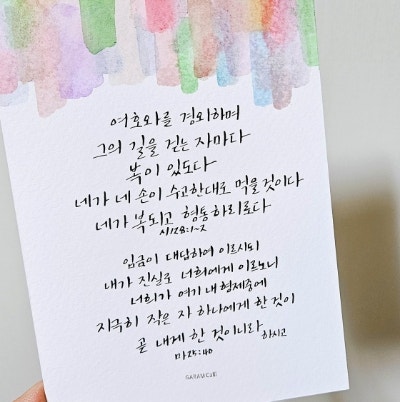 여호와를 경외하며
그의 길을 걷는 자마다
복이 있도다
네가 네 손이 수고한대로 먹을 것이다
네가 복되고 형통하리로다
시128:1~2
임금이 대답하여 이르시되
내가 진실로 너희에게 이르노니
너희가 여기 내 형제중에
지극히 작은 자 하나에게 한 것이
곧 내게 한 것이니라 하시고
마25:40